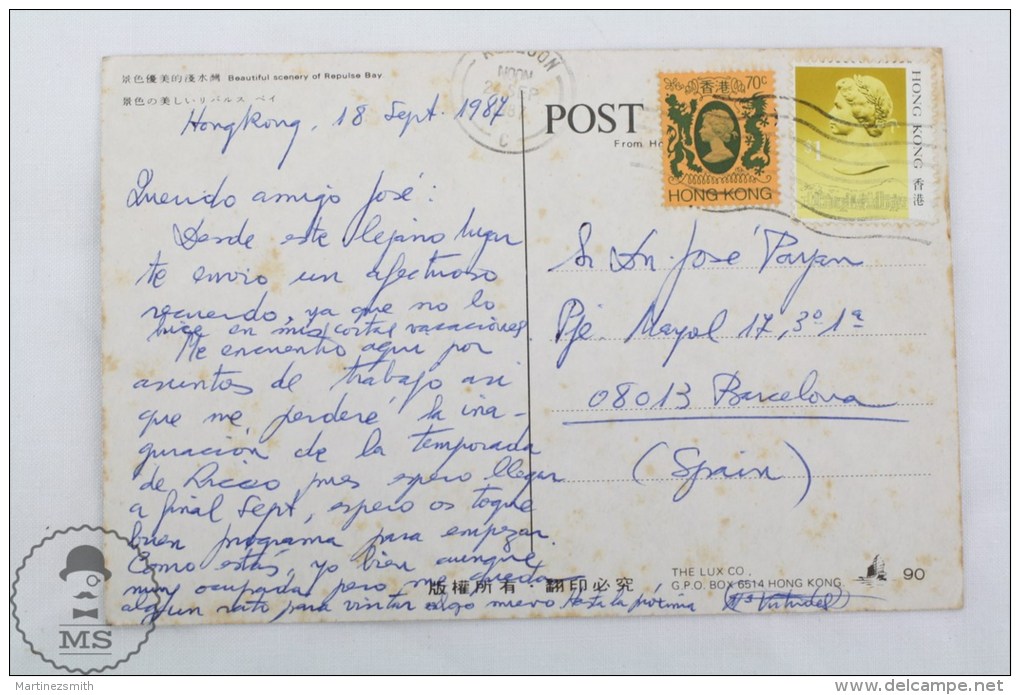 景色優美的淺水灣 Beautiful scenery of Repulse Bay
景色の美しいリパルス ベイ
Hongkong, 18 Sept. 1987
Querido amigo José:
Desde este lejano lugar
te envio un afectuoso
recuerdo, ya que no lo
hice en mis cortas vacaciones
Me encuentro aqui por
asuntos de trabajo asi
que me perderé la ina-
guración de la temporada
de Liceo pues espero llegar
a final Sept, espero os toque
buen programa para empezar.
Como estás, yo bien aunque
muy ocupada pero me queda
algun rato para visitar algo nuevo Hasta la próxima
Mª Virtudes
KOWLOON
NOON
SEP
C
POST
From Ho
香港 70c
HONG KONG
HONG KONG 香港
$1
Sr. Dn. José Payan
Pje. Mayol 17, 3º 1ª
08013 Barcelona
(Spain)
版權所有·翻印必究
THE LUX CO.,
G.P.O. BOX 6514 HONG KONG.
90
MS
Martinezsmith
www.delcampe.net